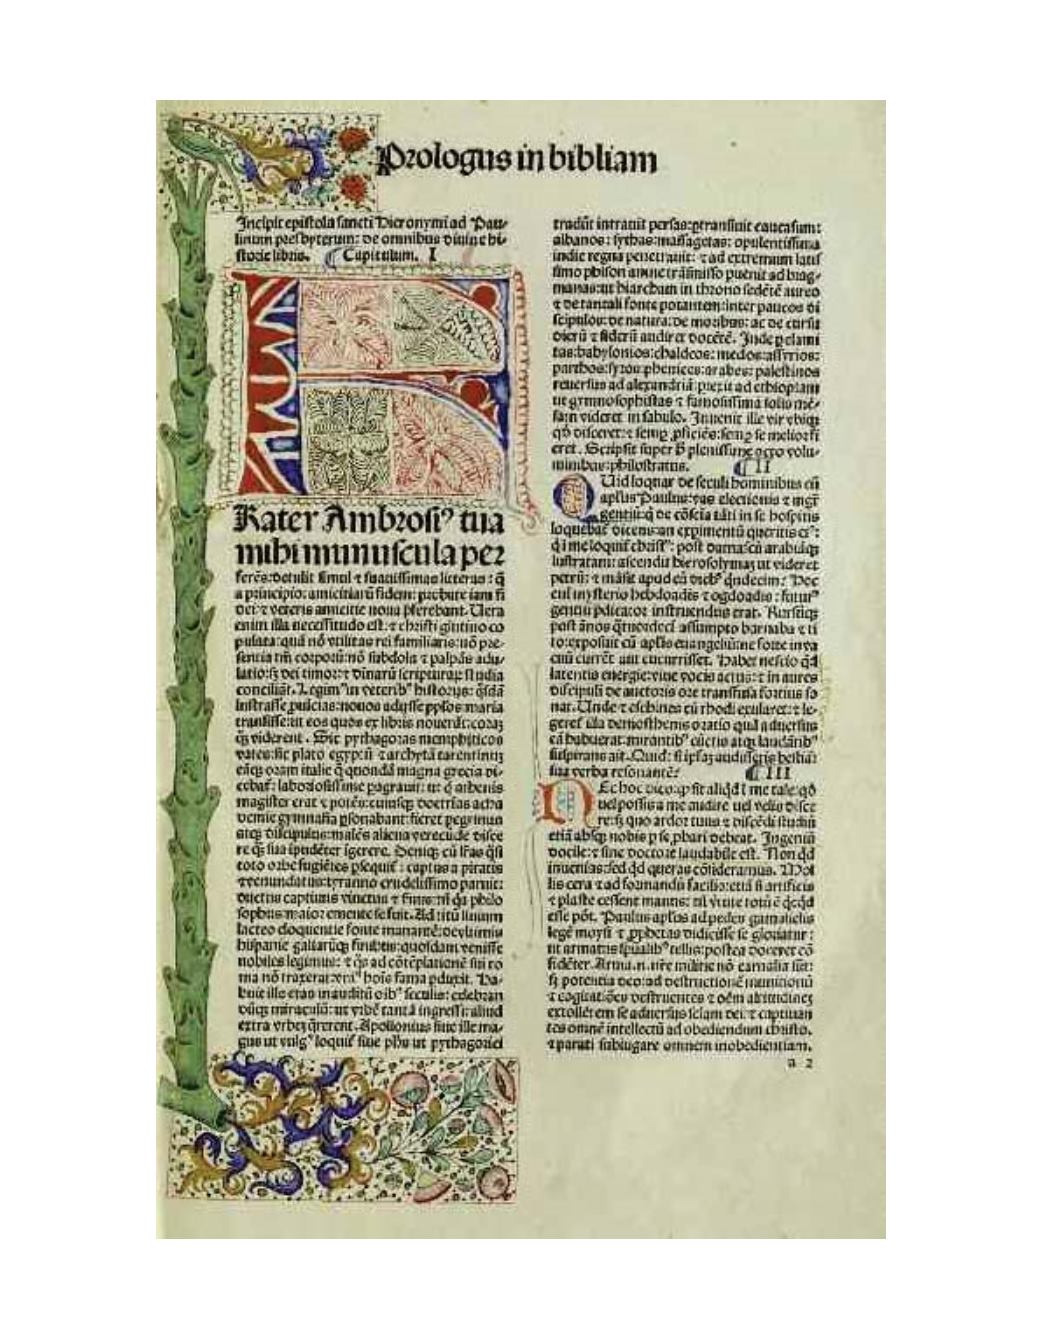 Prologus in bibliam
Incipit epistola sancti Hieronymi ad Pau-
linum presbyterum: de omnibus divine hi-
storie libris. Capitulum. I
F
Rater Ambrosiꝰ tua
mihi munuscula per
ferēs: detulit simul ⁊ suavissimas litteras: q̄
a principio: amicitiarū fidem: probate iam fi
dei: ⁊ veteris amicitie nova p̄ferebant. Vera
enim illa necessitudo est: ⁊ christi glutino co
pulata: quā nō vtilitas rei familiaris: nō pre-
sentia tm̄ corporū: nō subdola ⁊ palpās adu-
latio: sꝫ dei timor: ⁊ divinarū scripturaꝝ studia
conciliāt. Legimꝰ in veteribꝰ historijs: q̄sdā
lustrasse ꝓuīcias: novos adijsse pp̄los: maria
transisse: ut eos quos ex libris noverāt: coraꝫ
qꝫ viderent. Sic pythagoras memphiticos
vates: sic plato egyptū ⁊ archytā tarentinuꝫ
eāqꝫ oram italie q̄ quondā magna grecia di-
cebat̄: laboriosissime pagravit: ut q̄ athenis
magister erat ⁊ potēs: cuiusqꝫ doctrīas acha
demie gymnasia ꝑsonabant: fieret pegrinus
atqꝫ discipulus: malēs aliena verecūde disce
re qꝫ sua īpudēter īgerere. Deniqꝫ cū lr̄as q̄si
toto orbe fugiētes ꝑsequit̄: captus a piratis
⁊ venundatus: tyranno crudelissimo paruit:
ductus captivus vinctus ⁊ servus: tn̄ qꝫ philo
sophus: maior emente se fuit. Ad titū livium
lacteo eloquentie fonte manantē: de vltimis
hispanie galiarūqꝫ finibus: quosdam venisse
nobiles legimus: ⁊ qͦs ad cōtēplationē sui ro
ma nō traxerat: vniꝰ hoīs fama pduxit. Ha-
buit illa etas inauditū oībꝰ seculis: celebran
dūqꝫ miraculū: ut vrbē tantā ingressi: aliud
extra vrbeꝫ q̄rerent. Apollonius sive ille ma-
gus ut vulgꝰ loquit̄ sive ph̄s ut pythagorici
tradūt intravit persas: ꝑtransivit caucasum:
albanos: scythas: massagetas: opulentissima
indie regna penetravit: ⁊ ad extremum latis
simo phison amne trāsmisso puenit ad brag-
manas: ut hiarcham in throno sedētē aureo
⁊ de tantali fonte potantem: inter paucos di
scipulos: de natura: de moribus: ac de cursu
dierū ⁊ siderū audiret docētē. Inde ꝑ elami
tas: babylonios: chaldeos: medos: assyrios:
parthos: syros: phenices: arabes: palestinos
reversus ad alexandriā: prexit ad ethiopiam
ut gymnosophistas ⁊ famosissima solis mē-
sam videret in sabulo. Invenit ille vir vbiqꝫ
qd̄ disceret: ⁊ semꝑ ꝓficiēs: semꝑ se melior fi
eret. Scripsit super h̄ plenissime octo volu-
minibus: philostratus. II
Quid loquar de seculi hominibus cū
apl̄us Paulus: vas electionis ⁊ mgr̄
gentiū: q̄ de cōscīa tāti in se hospitis
loquebat̄ dicens: an expimentū queritis eiꝰ:
q̄ ī me loquit̄ christꝰ: post damascū arabiāqꝫ
lustratam: ascendit hierosolymaꝫ ut videret
petrū: ⁊ māsit apud eū diebꝰ q̄ndecim: Hoc
eni mysterio hebdoadis ⁊ ogdoadis: futurꝰ
gentiū pdicator instruendus erat. Rursūqꝫ
post ānos q̄tuordecī assumpto barnaba ⁊ ti
to: exposuit cū apl̄is euangeliū: ne forte in va
cuū currēt aut cucurrisset. Habet nescio qd̄
latentis energie: vive vocis actus: ⁊ in aures
discipuli de auctoris ore transfusa fortius so
nat. Unde ⁊ eschines cū rhodi exularet: ⁊ le-
geret̄ illa demosthenis oratio quā adversus
eū habuerat: mirantibꝰ cūctis atqꝫ laudātibꝰ
suspirans ait. Quid: si ipsaꝫ audissetis bestiā:
sua verba resonantē? III
Nec hoc dico: ꝙ sit aliqd̄ ī me tale: qd̄
vel possis a me audire vel velis disce
re: sꝫ quo ardor tuus ⁊ discēdi studiū
etiā absqꝫ nobis ꝑ se ꝓbari debeat. Ingeniū
docile: ⁊ sine doctore laudabile est. Non qd̄
invenias: sed qd̄ queras cōsideramus. Mol
lis cera ⁊ ad formandū facilis: etiā si artificis
⁊ plaste cessent manus: tn̄ v̄tute totū ē qͥcqd̄
esse pōt. Paulus apl̄us ad pedes gamalielis
legē moysi ⁊ ꝓphetas didicisse se gloriatur:
ut armatus sp̄ualibꝰ tellis: postea doceret cō
fidēter. Arma. n. nr̄e militie nō carnalia sūt:
sꝫ potentia deo: ad destructionē munitionū
⁊ cogitatiōes destruentes ⁊ oēm altitudinez
extollētem se adversus sciam dei: ⁊ captivan
tes omnē intellectū ad obediendum christo.
⁊ parati subiugare omnem inobedientiam.
a 2